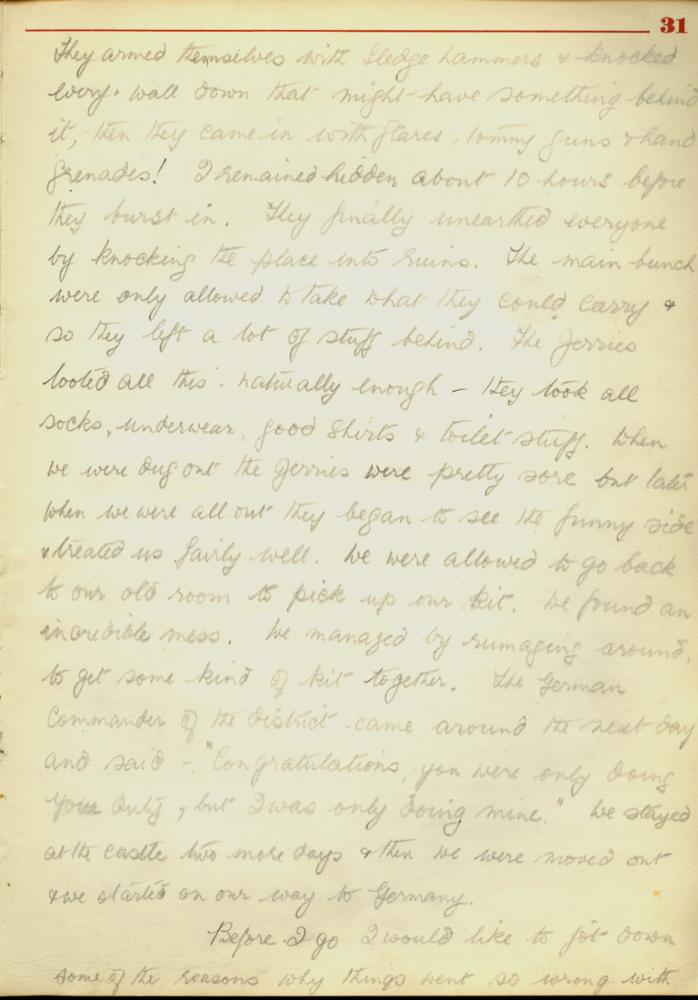 31
They armed themselves with sledge hammers & knocked
every wall down that might have something behind
it, then they came in with flares, tommy guns & hand
grenades! I remained hidden about 10 hours before
they burst in. They finally unearthed everyone
by knocking the place into ruins. The main bunch
were only allowed to take what they could carry &
so they left a lot of stuff behind. The Jerries
looted all this - naturally enough - they took all
socks, underwear, good shirts & toilet stuff. When
we were dug out the Jerries were pretty sore but later
when we were all out they began to see the funny side
& treated us fairly well. We were allowed to go back
to our old room to pick up our kit. We found an
incredible mess. We managed by rumaging around,
to get some kind of kit together. The German
Commander of the District came around the next day
and said - "Congratulations, you were only doing
your duty, but I was only doing mine." We stayed
at the castle two more days & then we were moved out
& we started on our way to Germany.
Before I go I would like to jot down
some of the reasons why things went so wrong with